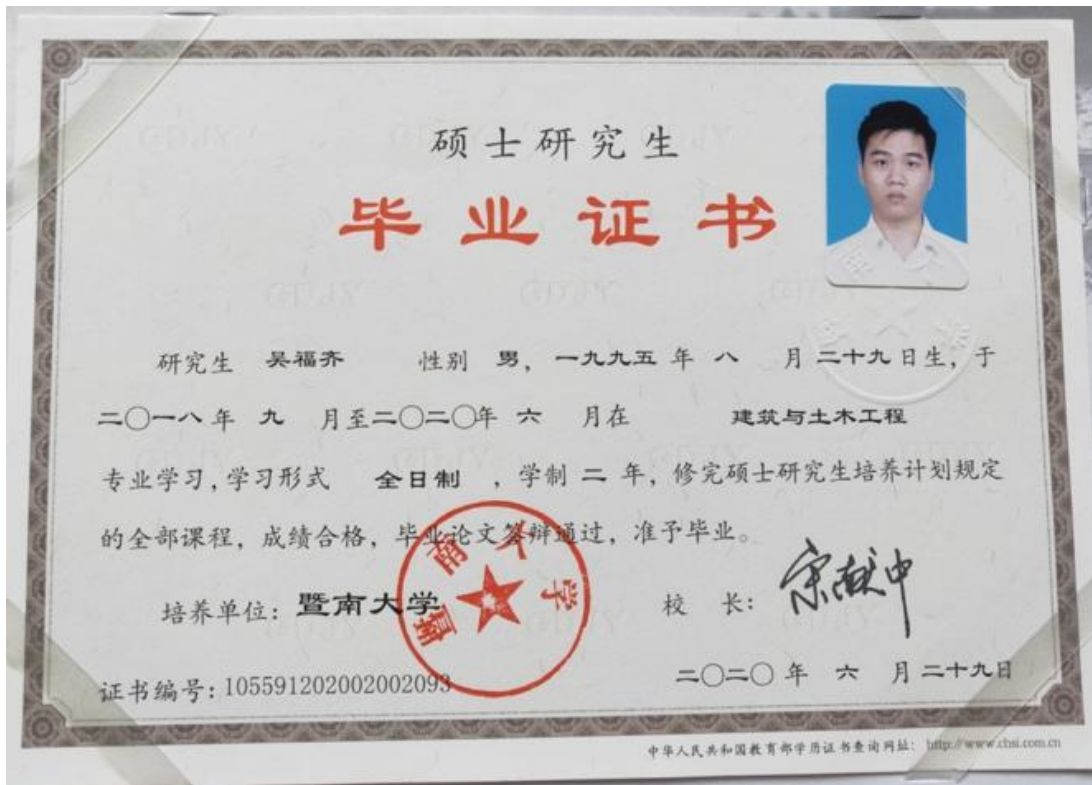 硕士研究生
毕业证书
研究生 吴福齐 性别 男，一九九五 年 八 月 二十九 日生，于
二〇一八 年 九 月至 二〇二〇 年 六 月在 建筑与土木工程
专业学习，学习形式 全日制 ，学制 二 年，修完硕士研究生培养计划规定
的全部课程，成绩合格，毕业论文答辩通过，准予毕业。
培养单位：暨南大学
暨南大学
校 长：宋献中
证书编号：105591202002002093
二〇二〇 年 六 月 二十九日
中华人民共和国教育部学历证书查询网址：http://www.chsi.com.cn